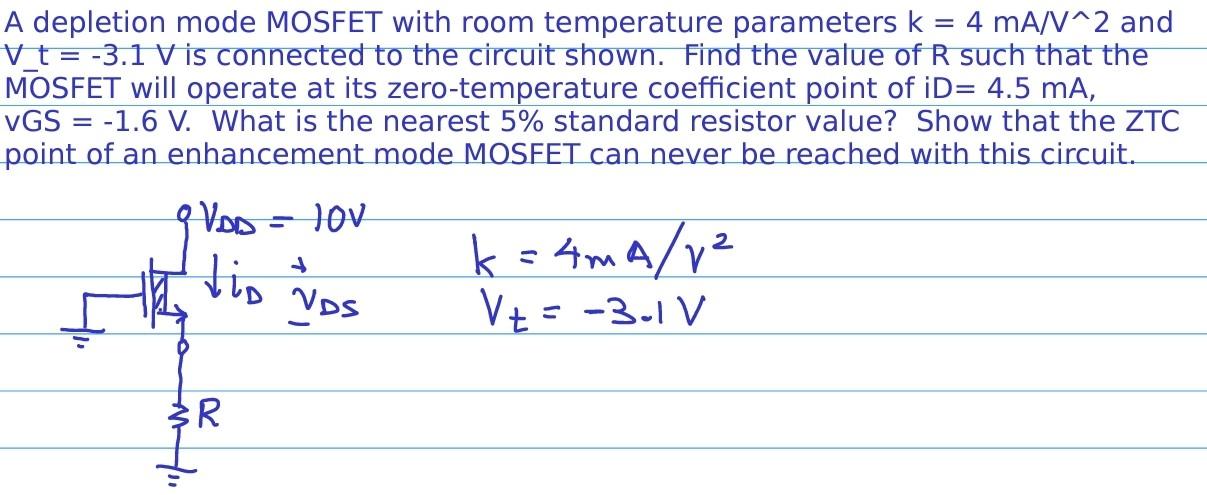 A depletion mode MOSFET with room temperature parameters k = 4 mA/V^2 and
V_t = -3.1 V is connected to the circuit shown.  Find the value of R such that the
MOSFET will operate at its zero-temperature coefficient point of iD= 4.5 mA,
vGS = -1.6 V.  What is the nearest 5% standard resistor value?  Show that the ZTC
point of an enhancement mode MOSFET can never be reached with this circuit.
VDD = 10V
k = 4mA/V²
↓iD + VDS −
Vt = -3.1 V
R